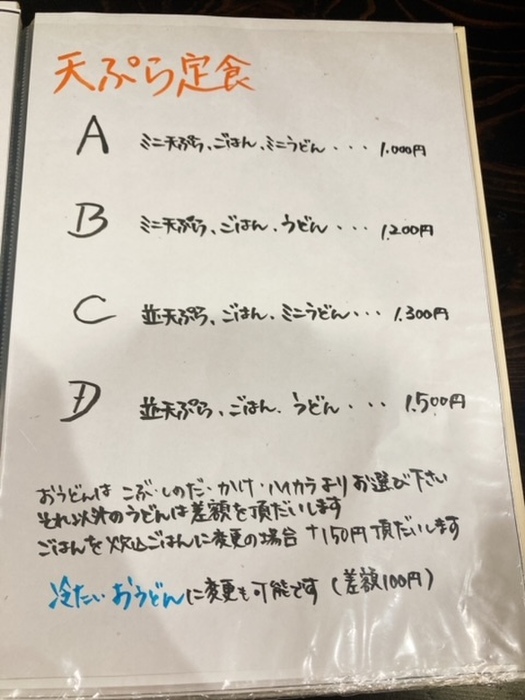 天ぷら定食
A ミニ天ぷら、ごはん、ミニうどん・・・ 1.000円
B ミニ天ぷら、ごはん、うどん・・・ 1.200円
C 並天ぷら、ごはん、ミニうどん・・・ 1.300円
D 並天ぷら、ごはん、うどん・・・ 1.500円
おうどんは こぶ・しのだ・かけ・ハイカラよりお選び下さい
それ以外のうどんは差額を頂だいします
ごはんを炊込ごはんに変更の場合 +150円頂だいします
冷たいおうどんに変更も可能です(差額100円)